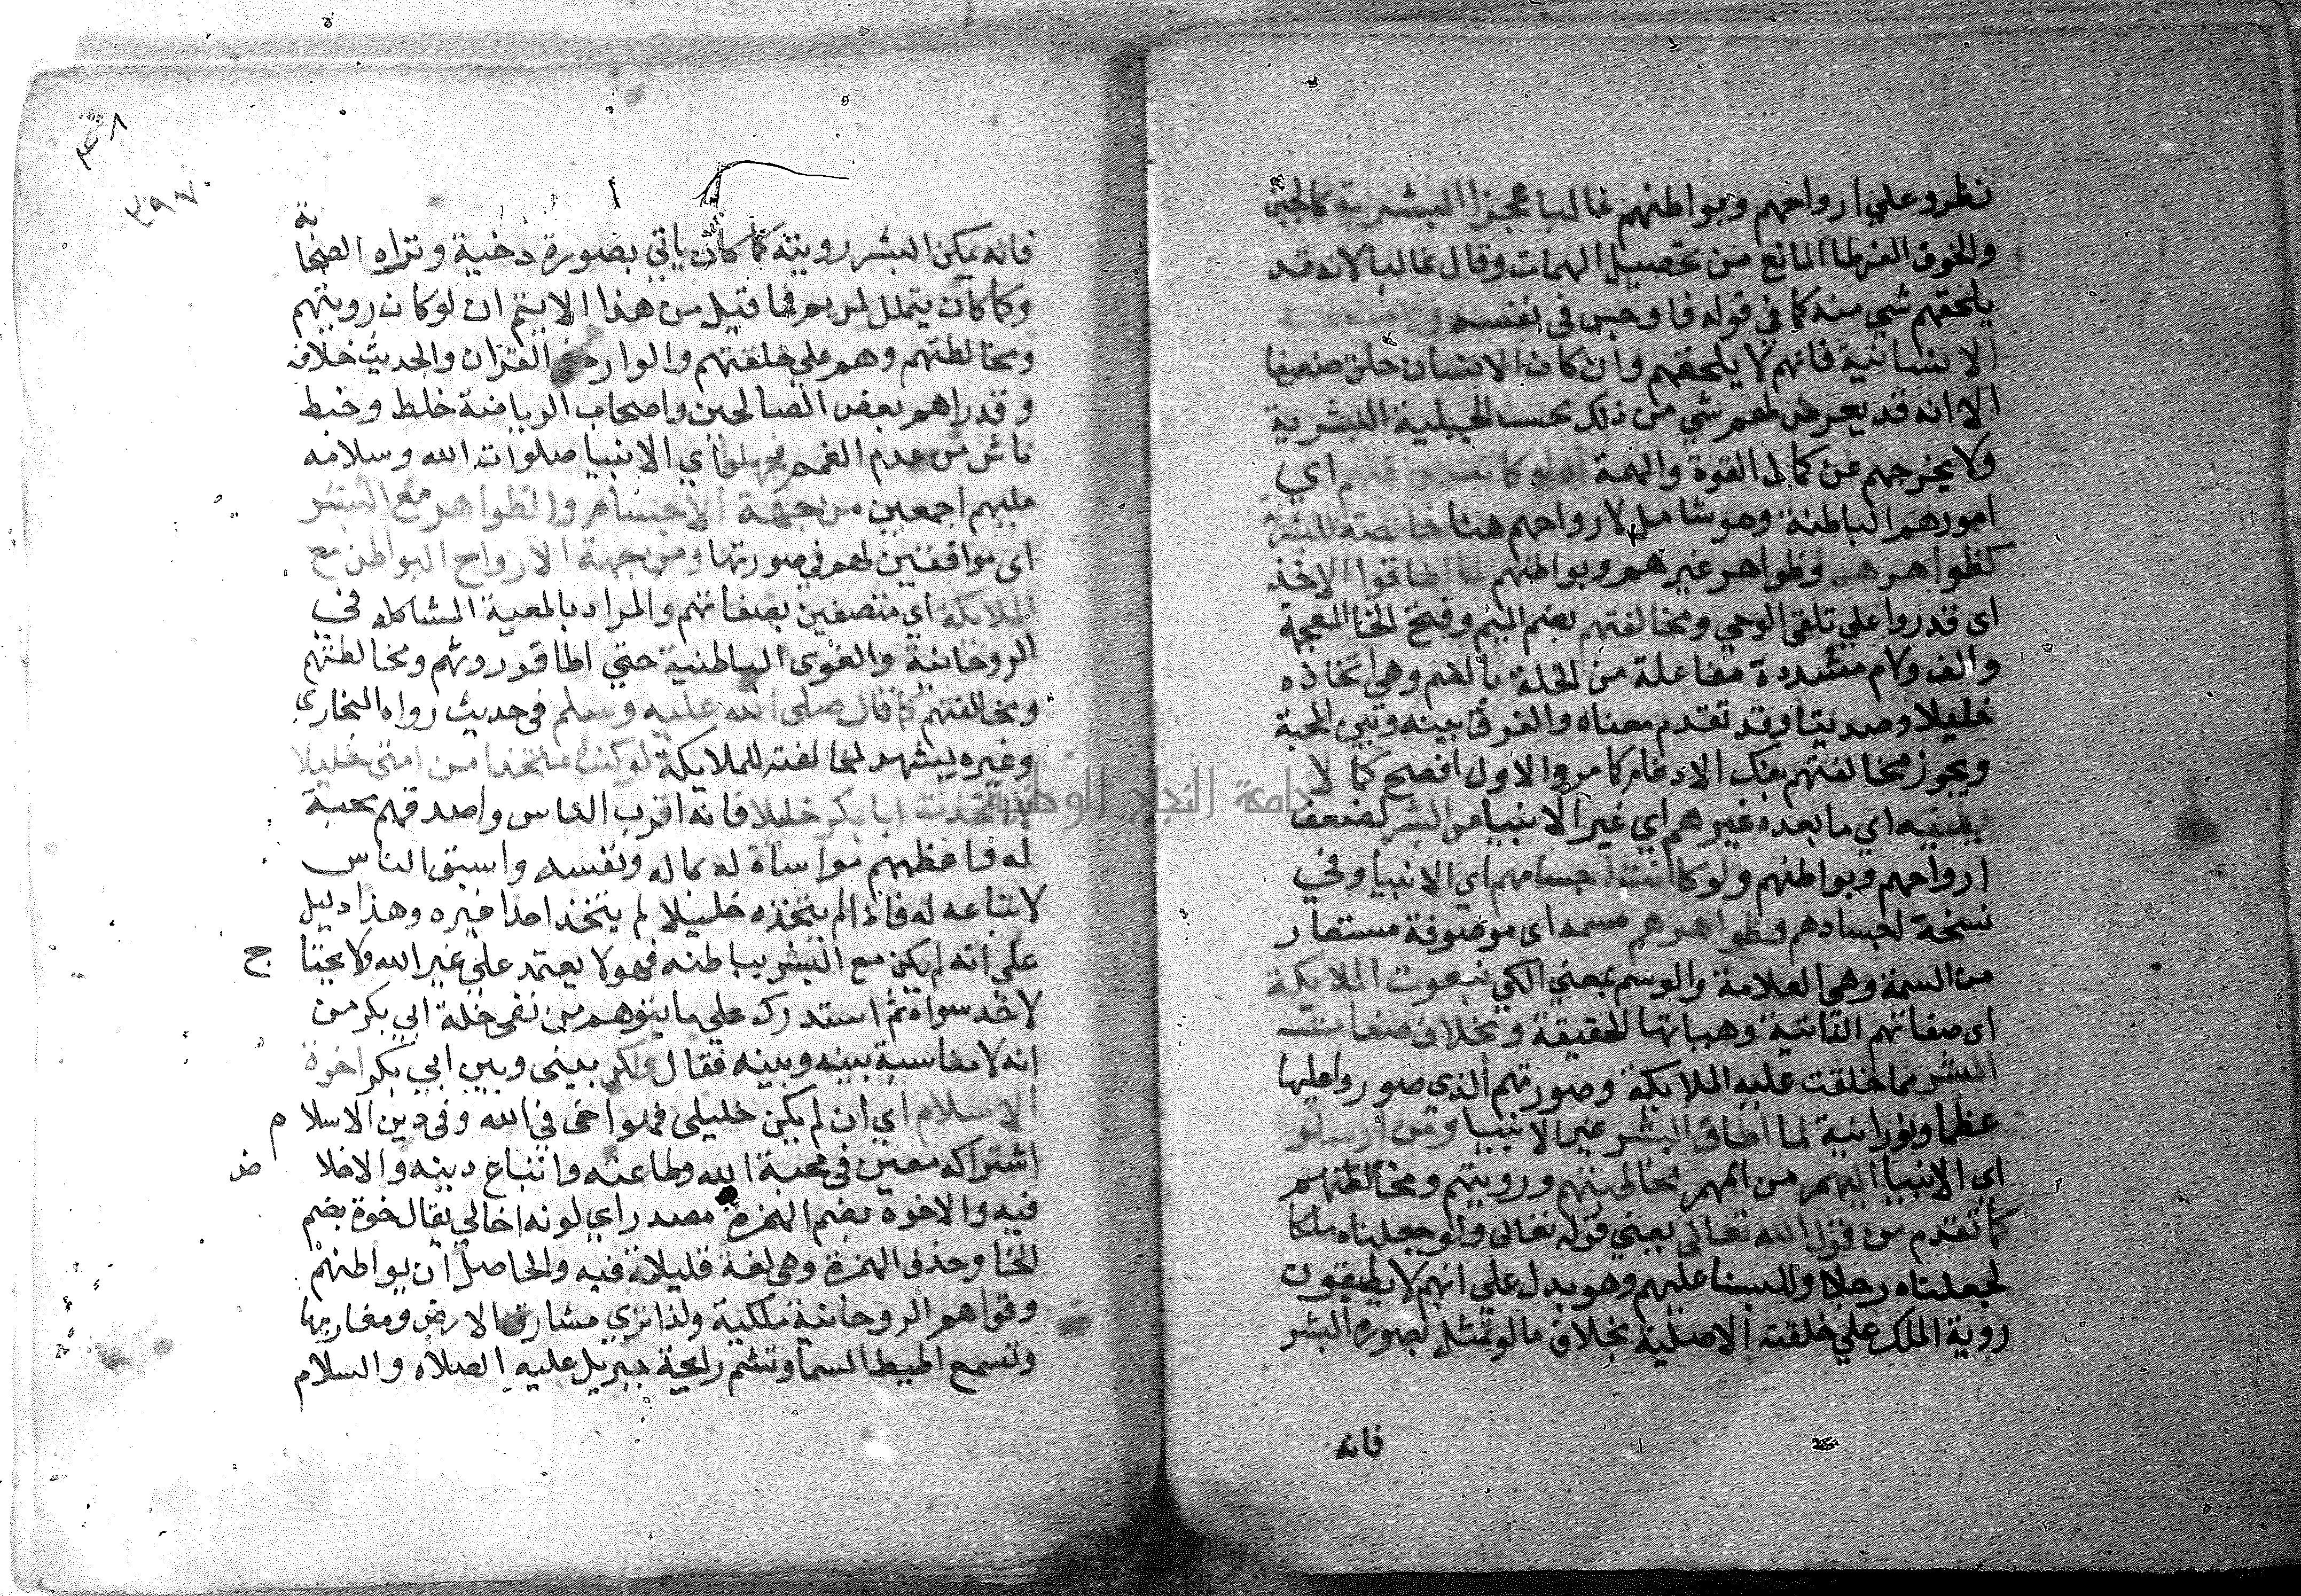 نظرو علي ارواحهم وبواطنهم غالبا عجزا البشرية كالجبن
والخوف المانع من تحصيل المهمات وقال غالبا لانه قد
يلحقهم شي منه كما في قوله فاوجس في نفسه ولا
الانسانية فانهم لا يلحقهم وان كان الانسان خلق ضعيفا
الا انه قد يعرض لهم شي من ذلك بحسب الجبلية البشرية
ولا يخرجهم عن كمال القوة والهمة اذ لو كانت بواطنهم اي
امورهم الباطنة وهو شامل لارواحهم هنا خالصة للبشرية
كظواهرهم وظواهر غيرهم وبواطنهم لما اطاقوا الاخذ
اي قدروا علي تلقي الوحي ومخالتهم بضم الميم وفتح الخا المعجمة
والف ولام مشددة مفاعلة من الخلة بالضم وهي اتخاذه
خليلا وصديقا وقد تقدم معناه والفرق بينه وبين المحبة
ويجوز مخاللتهم بفك الادغام كما مر والاول افصح كما لا
يطيقه اي ما بعده غيرهم اي غير الانبيا من البشر لضعف
ارواحهم وبواطنهم ولو كانت اجسامهم اي الانبيا وفي
نسخة اجسادهم وظواهرهم متسمة اي موصوفة مستعار
من السمة وهي العلامة والوسم بمعني الكي بنعوت الملايكة
اي صفاتهم الذاتية وهياتها الحقيقة وبخلاف صفات
البشر مما خلقت عليه الملايكة وصورتهم الذي صوروا عليها
عظما ونورانية لما اطاق البشر غير الانبيا ومن ارسلو
اي الانبيا اليهم من اممهم مخالطتهم ورويتهم ومخالتهم
كما تقدم من قول الله تعالي يعني قوله تعالي ولو جعلناه ملكا
لجعلناه رجلا وللبسنا عليهم وهو يدل علي انهم لا يطيقون
روية الملك علي خلقته الاصلية بخلاف ما لو تمثل بصورة البشر
فانه
٣٤٨
٣٩٧
فانه يمكن البشر رويته كما كان ياتي بصورة دحية وتراه الصحابة
وكما كان يتمثل لمريم فما قيل من هذا الا يتم ان لو كان رويتهم
ومخالطتهم وهم علي خلقتهم والوارد في القران والحديث خلافه
وقد راهم بعض الصالحين واصحاب الرياضة خلط وخبط
ناش من عدم الفهم فجعلوا اي الانبيا صلوات الله وسلامه
عليهم اجمعين من جهة الاجسام والظواهر مع البشر
اي موافقين لهم في صورتها ومن جهة الارواح البواطن مع
الملايكة اي متصفين بصفاتهم والمراد بالمعية المشاكلة في
الروحانية والقوي الباطنية حتي اطاقو رويتهم ومخالطتهم
ومخاللتهم كما قال صلى الله عليه وسلم في حديث رواه البخاري
وغيره يشهد لمخالفته للملايكة لو كنت متخذا من امتي خليلا
لاتخذت ابا بكر خليلا فانه اقرب الناس واصدقهم محبة
له واعظمهم مواساة له بماله ونفسه واسبق الناس
لاتباعه له فاذا لم يتخذه خليلا لم يتخذ احدا غيره وهذا دليل
علي انه لم يكن مع البشر بباطنه فهو لا يعتمد علي غير الله ولا يحتاج
لاحد سواه ثم استدرك علي ما يتوهم من نفي خلة ابي بكر من
انه لا مناسبة بينه وبينه فقال ولكن بيني وبين ابي بكر اخوة
الاسلام اي ان لم يكن خليلي فهو اخي في الله وفي دين الاسلام
اشتراكه معين في محبة الله وطاعته واتباع دينه والاخلاض
فيه والاخوة بضم الهمزة مصدر اي لونه اخا لي يقال خوة بضم
الخا وحذف الهمزة وهي لغة قليلة فيه والحاصل ان بواطنهم
وقواهم الروحانية ملكية ولذا تري مشارق الارض ومغاربها
وتسمع اطيط السما وتشم رايحة جبريل عليه الصلاة والسلام
جامعة النجاح الوطنية